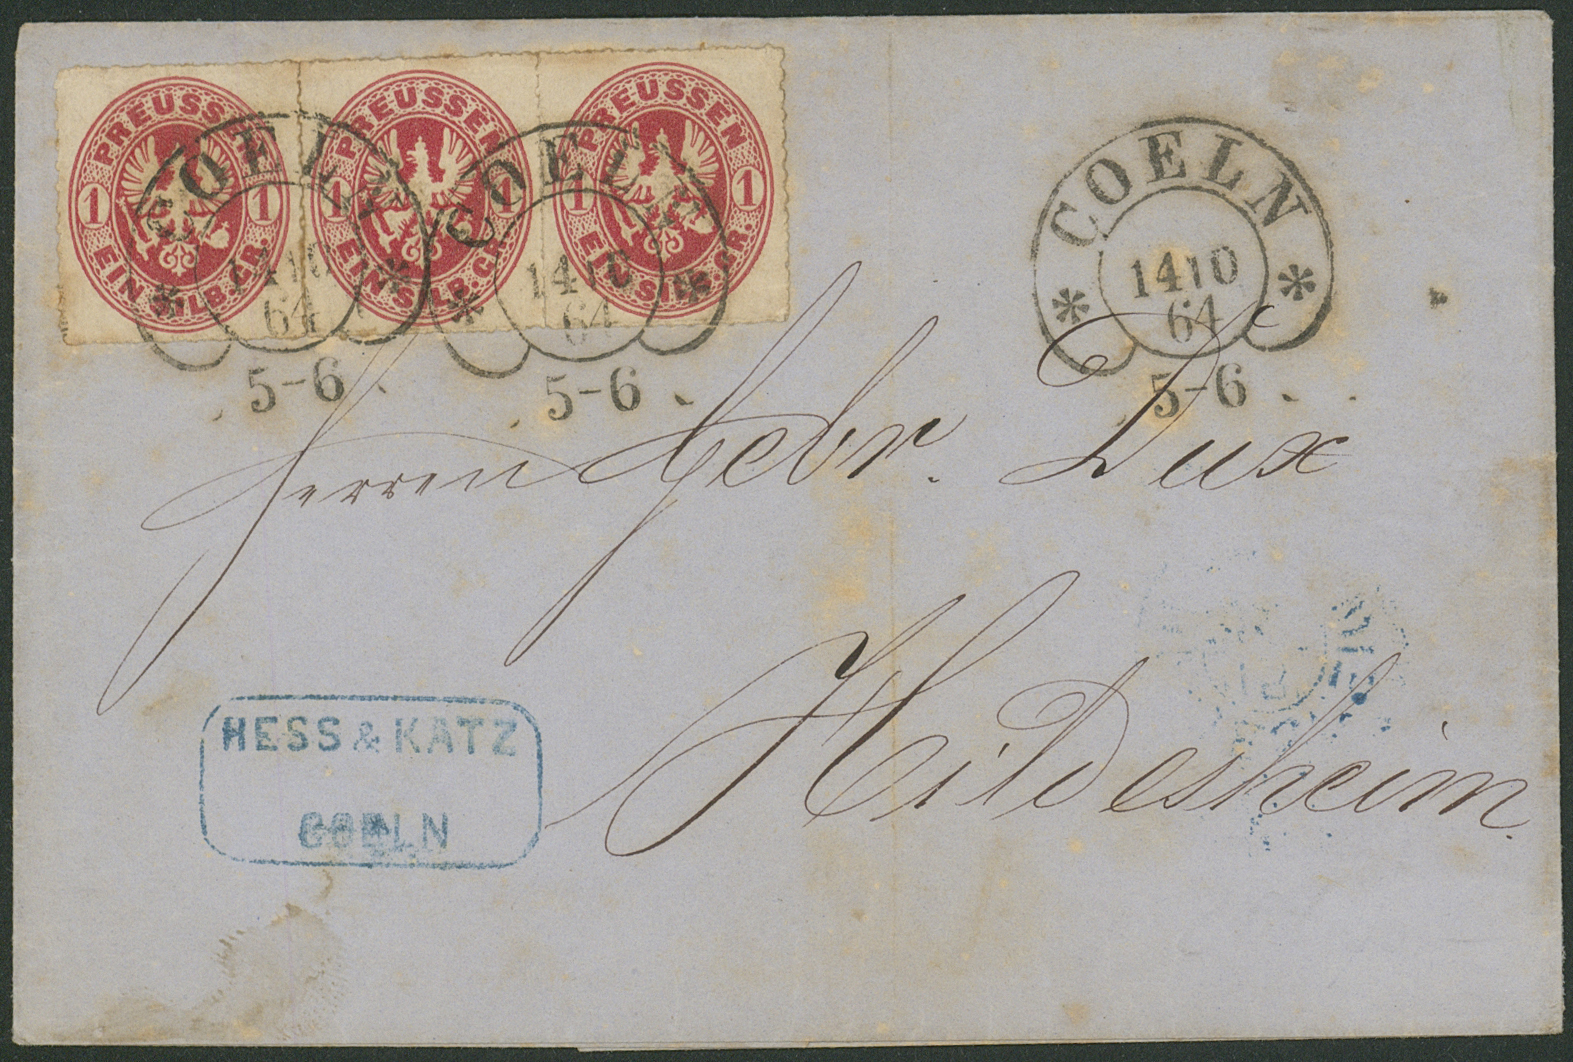 PREUSSEN
1 1
EIN SILB. GR.
PREUSSEN
1 1
EIN SILB. GR.
PREUSSEN
1 1
EIN SILB. GR.
COELN
14 10
64
5-6
COELN
14 10
64
5-6
* COELN *
14 10
64
5-6
Herren Gebr. Dux
Hildesheim.
HESS & KATZ
COELN